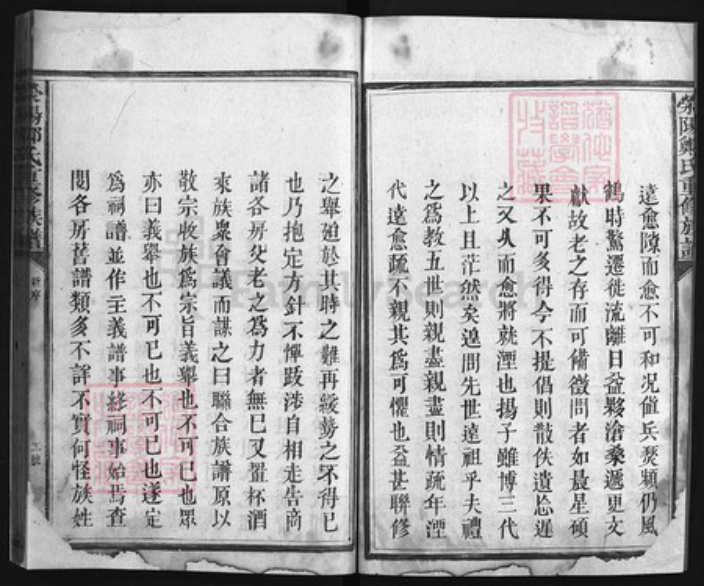 滎陽鄭氏重修族譜
遠愈隙而愈不可和况傕兵燹頻仍風
鶴時驚遷徙流離日益夥滄桑遞更文
獻故老之存而可備徵問者如晨星碩
果不可多得今不提倡則散佚遺忘遲
之又久而愈將就湮也揚子雖博三代
以上且茫然矣遑問先世遠祖乎夫禮
之為教五世則親盡親盡則情疏年湮
代遠愈疏不親其為可懼也益甚聯修
之舉迫於其時之難再緩勢之不得已
也乃抱定方針不憚跋涉自相走告商
諸各房父老之為力者無已又置杯酒
來族衆會議而謀之曰聯合族譜原以
敬宗收族為宗旨義舉也不可已也眾
亦曰義舉也不可已也不可已也遂定
為祠譜並作主義譜事終祠事始焉查
閱各房舊譜類多不詳不實何怪族姓
滎陽鄭氏重修族譜
新序
FamilySearch